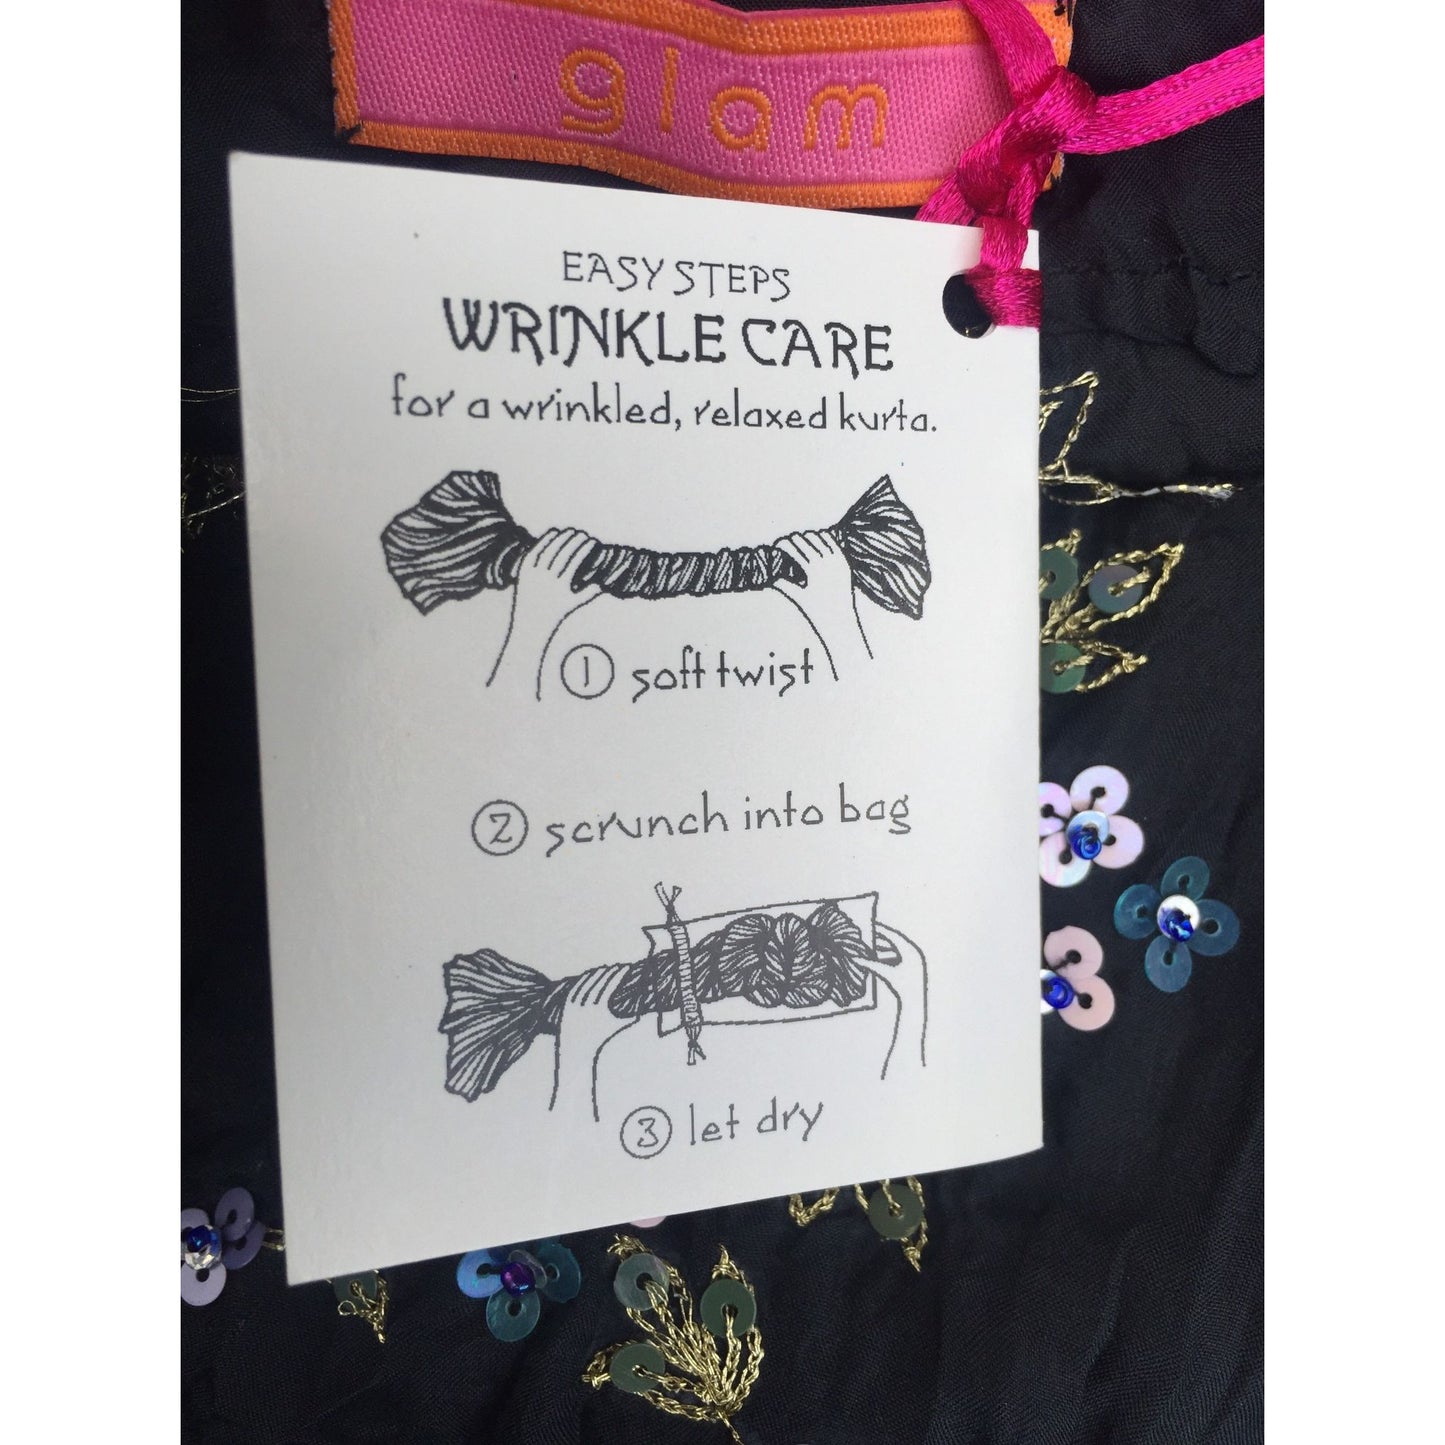 glam
EASY STEPS
WRINKLE CARE
for a wrinkled, relaxed kurta.
1 soft twist
2 scrunch into bag
3 let dry